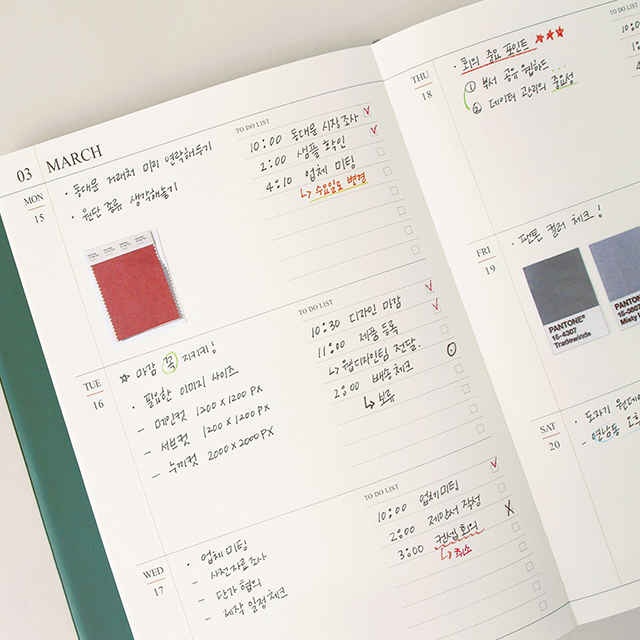 03 MARCH
MON
15
· 동대문 거래처 미리 연락해두기
· 원단 종류 생각해놓기
TO DO LIST
10:00 동대문 시장조사 ✓
2:00 샘플 확인 ✓
4:10 업체 미팅
↳ 수요일로 변경
TUE
16
☆ 마감 꼭 지키기!
· 필요한 이미지 사이즈
- 메인컷 1200 x 1200 PX
- 서브컷 1200 x 1200 PX
- 누끼컷 2000 x 2000 PX
TO DO LIST
10:30 디자인 마감 ✓
11:00 제품 등록 ✓
↳ 웹디자인팀 전달.
2:00 배송체크
↳ 보류
WED
17
· 업체미팅
- 사전자료조사
- 단가 협의
- 제작 일정체크
TO DO LIST
10:00 업체미팅 ✓
2:00 제안서 작성
3:00 컨셉회의 X
↳ 취소
THU
18
· 회의 중요 포인트 ★★★
① 부서 공유 웹하드
② 데이터 관리의 중요성
TO DO LIST
10:0
FRI
19
· 팬톤 컬러 체크!
PANTONE®
16-4307
Tradewinds
PANTONE
Misty
SAT
20
· 도자기
- 연남동